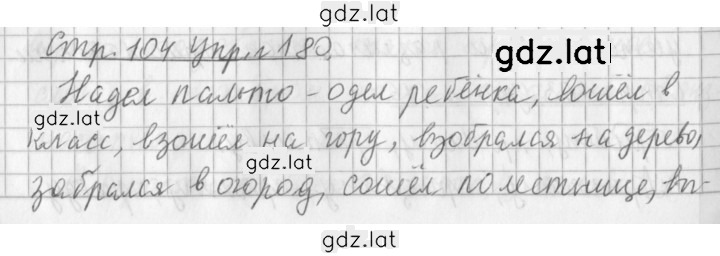 gdz.lat
Стр. 104 упр. 180.
gdz.lat
Надел пальто - одел ребёнка, вошёл в
gdz.lat
класс, взошёл на гору, взобрался на дерево,
gdz.lat
забрался в огород, сошёл по лестнице, вы-
gdz.lat